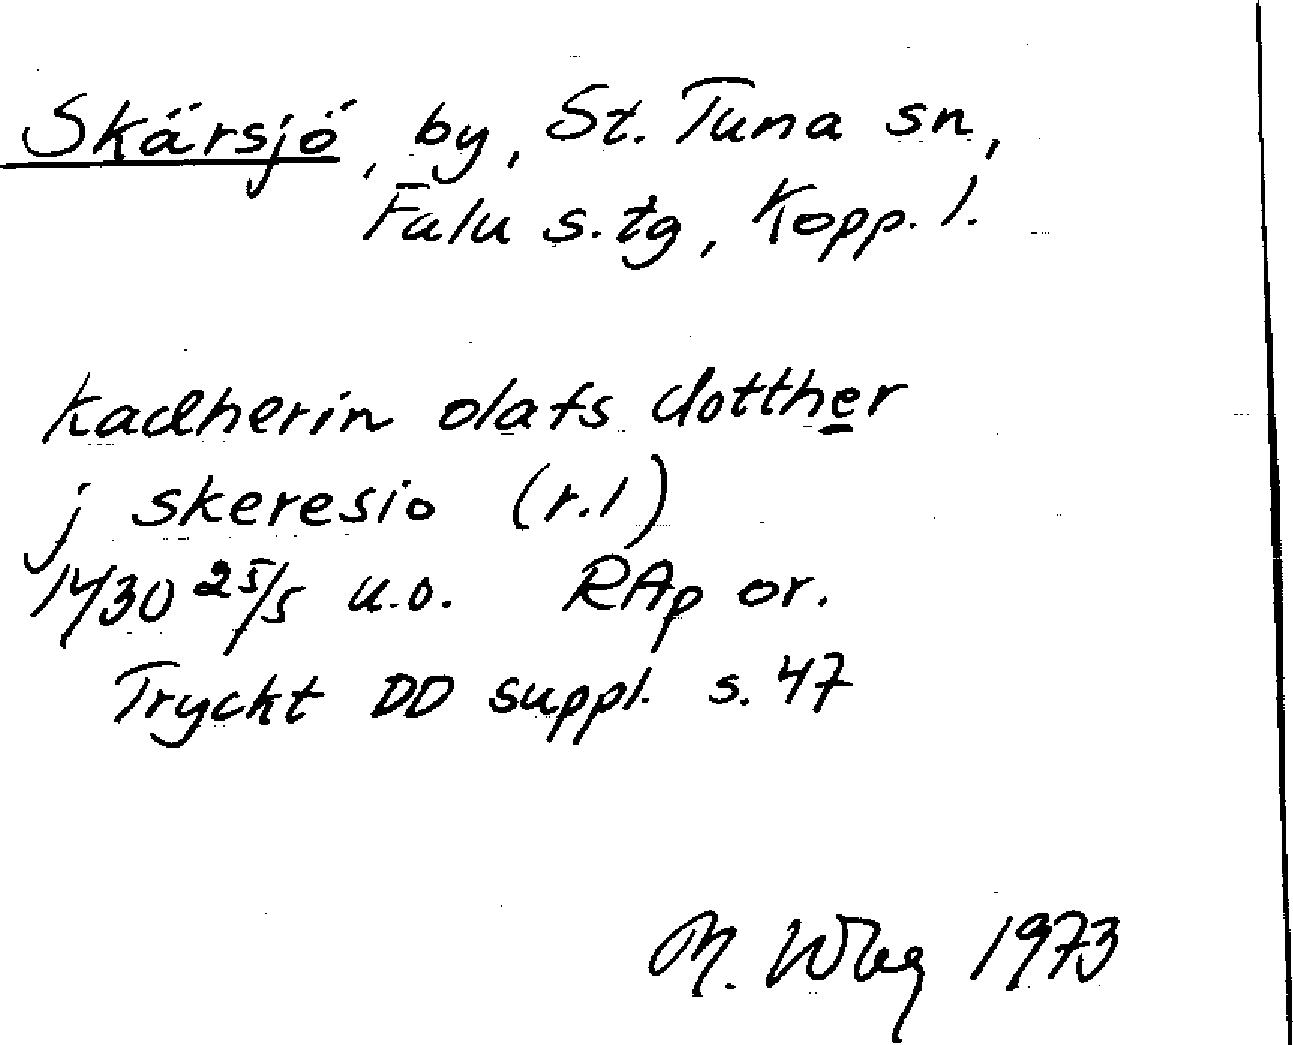 Skärsjö, by, St. Tuna sn,
Falu s. tg, Kopp. l.
kadherin olafs dotther
j skeresio (r.1)
1430 25/5 u.o. RAp or.
Tryckt DD suppl. s. 47
M. Wbg 1973